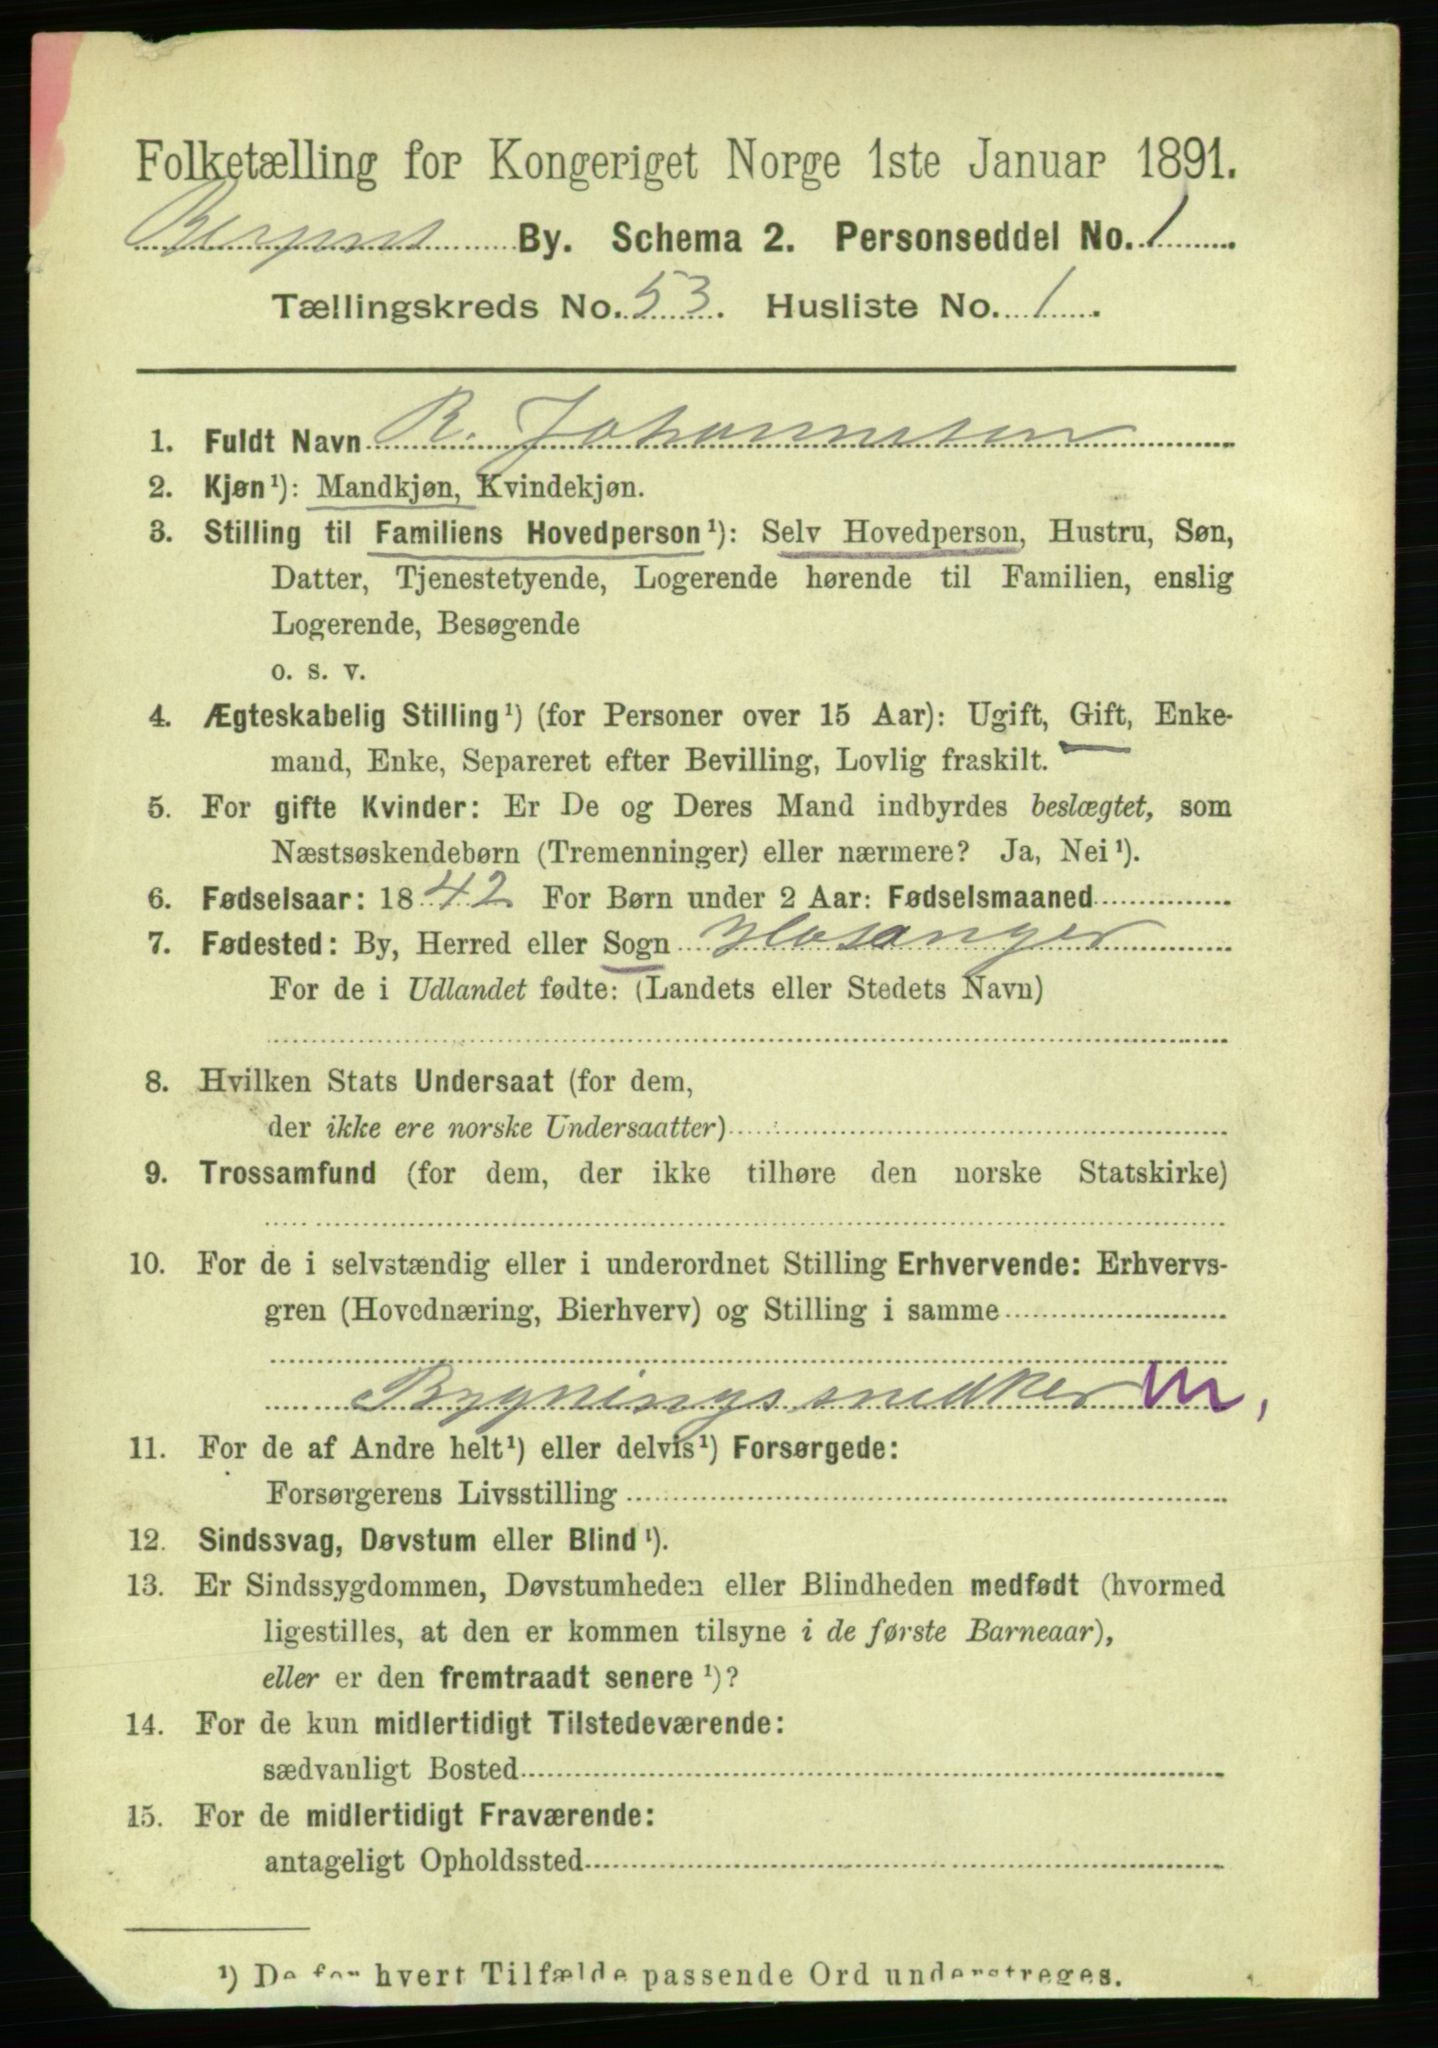 Folketælling for Kongeriget Norge 1ste Januar 1891.
Bergens By. Schema 2. Personseddel No. 1
Tællingskreds No. 53. Husliste No. 1.
1. Fuldt Navn R. Johannesen
2. Kjøn¹): Mandkjøn, Kvindekjøn.
3. Stilling til Familiens Hovedperson¹): Selv Hovedperson, Hustru, Søn,
Datter, Tjenestetyende, Logerende hørende til Familien, enslig
Logerende, Besøgende
o. s. v.
4. Ægteskabelig Stilling¹) (for Personer over 15 Aar): Ugift, Gift, Enke-
mand, Enke, Separeret efter Bevilling, Lovlig fraskilt.
5. For gifte Kvinder: Er De og Deres Mand indbyrdes beslægtet, som
Næstsøskendebørn (Tremenninger) eller nærmere? Ja, Nei¹).
6. Fødselsaar: 1842 For Børn under 2 Aar: Fødselsmaaned
7. Fødested: By, Herred eller Sogn Hosanger
For de i Udlandet fødte: (Landets eller Stedets Navn)
8. Hvilken Stats Undersaat (for dem,
der ikke ere norske Undersaatter)
9. Trossamfund (for dem, der ikke tilhøre den norske Statskirke)
10. For de i selvstændig eller i underordnet Stilling Erhvervende: Erhvervs-
gren (Hovednæring, Bierhverv) og Stilling i samme
Bygningssnedker m,
11. For de af Andre helt¹) eller delvis¹) Forsørgede:
Forsørgerens Livsstilling
12. Sindssvag, Døvstum eller Blind¹).
13. Er Sindssygdommen, Døvstumheden eller Blindheden medfødt (hvormed
ligestilles, at den er kommen tilsyne i de første Barneaar),
eller er den fremtraadt senere¹)?
14. For de kun midlertidigt Tilstedeværende:
sædvanligt Bosted
15. For de midlertidigt Fraværende:
antageligt Opholdssted
¹) De for hvert Tilfælde passende Ord understreges.